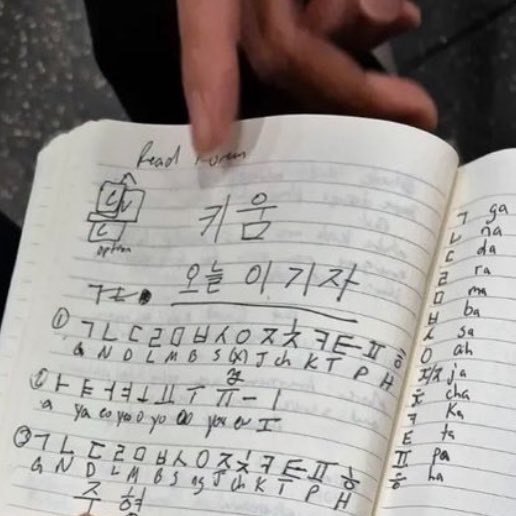 Read Korean
C V
C
option
키움
오늘 이기자
① ㄱ ㄴ ㄷ ㄹ ㅁ ㅂ ㅅ ㅇ ㅈ ㅊ ㅋ ㅌ ㅍ ㅎ
G N D L M B S (x) J ch K T P H
② ㅏ ㅑ ㅓ ㅕ ㅗ ㅛ ㅜ ㅠ ㅡ ㅣ
a ya eo yeo o yo
③ ㄱ ㄴ ㄷ ㄹ ㅁ ㅂ ㅅ ㅇ ㅈ ㅊ ㅋ ㅌ ㅍ ㅎ
G N D L M B S ng J ch K T P H
ㄱ ga
ㄴ na
ㄷ da
ㄹ ra
ㅁ ma
ㅂ ba
ㅅ sa
ㅇ ah
ㅈ/ㅈ ja
ㅊ cha
ㅋ Ka
ㅌ ta
ㅍ pa
ㅎ ha